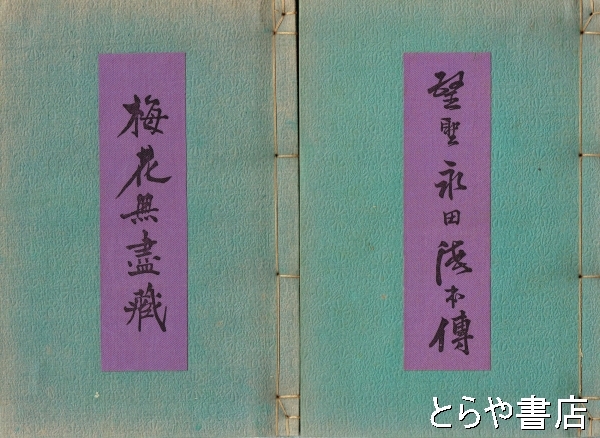 梅花無盡藏
醫聖永田德本傳
とらや書店